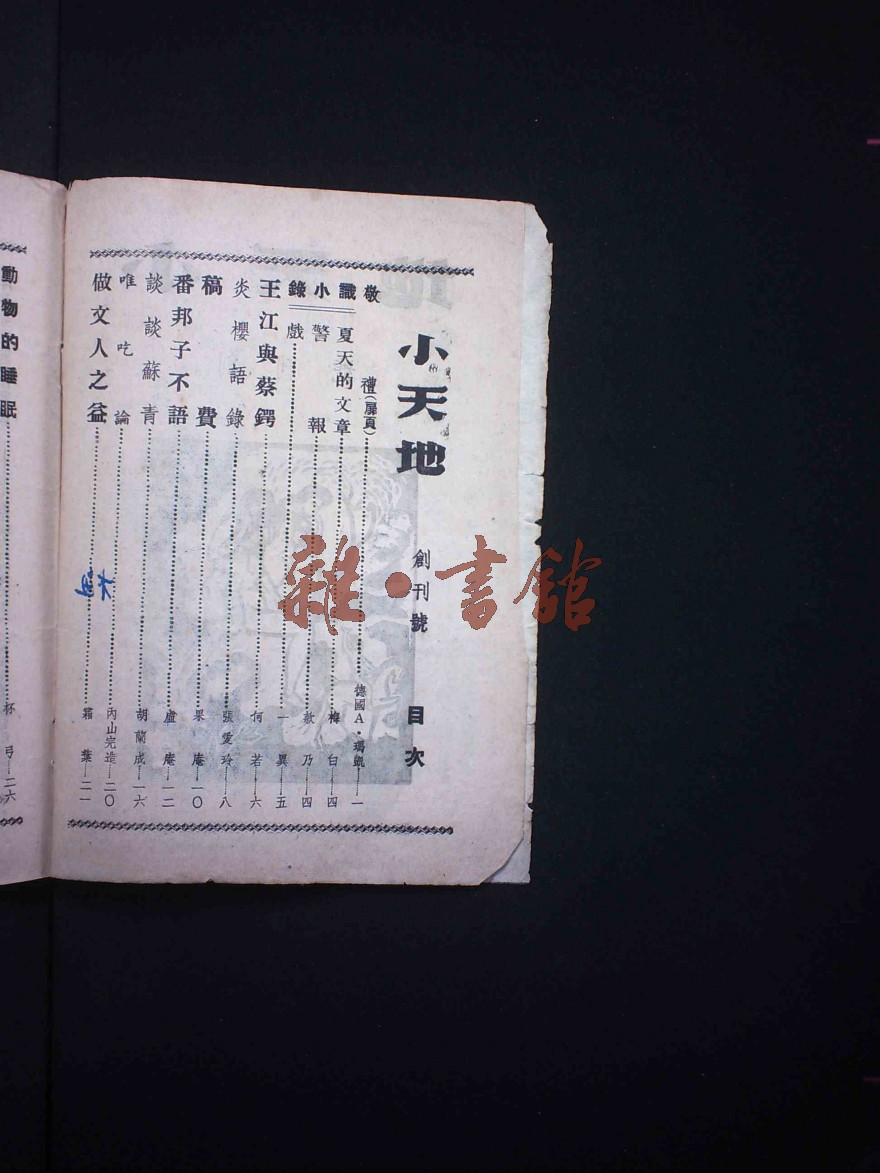 小天地 創刊號 目次
敬禮(扉頁)……德國A·瑪凱……一
識小錄
夏天的文章……梅白……四
警報……欸乃……四
戲……一異……五
王江與蔡鍔……何若……六
炎櫻語錄……張愛玲……八
稿費……果庵……一〇
番邦子不語……盧庵……一二
談談蘇青……胡蘭成……一六
唯吃論……內山完造……二〇
做文人之益……霜葉……二一
動物的睡眠……杯弓……二六
雜·書館